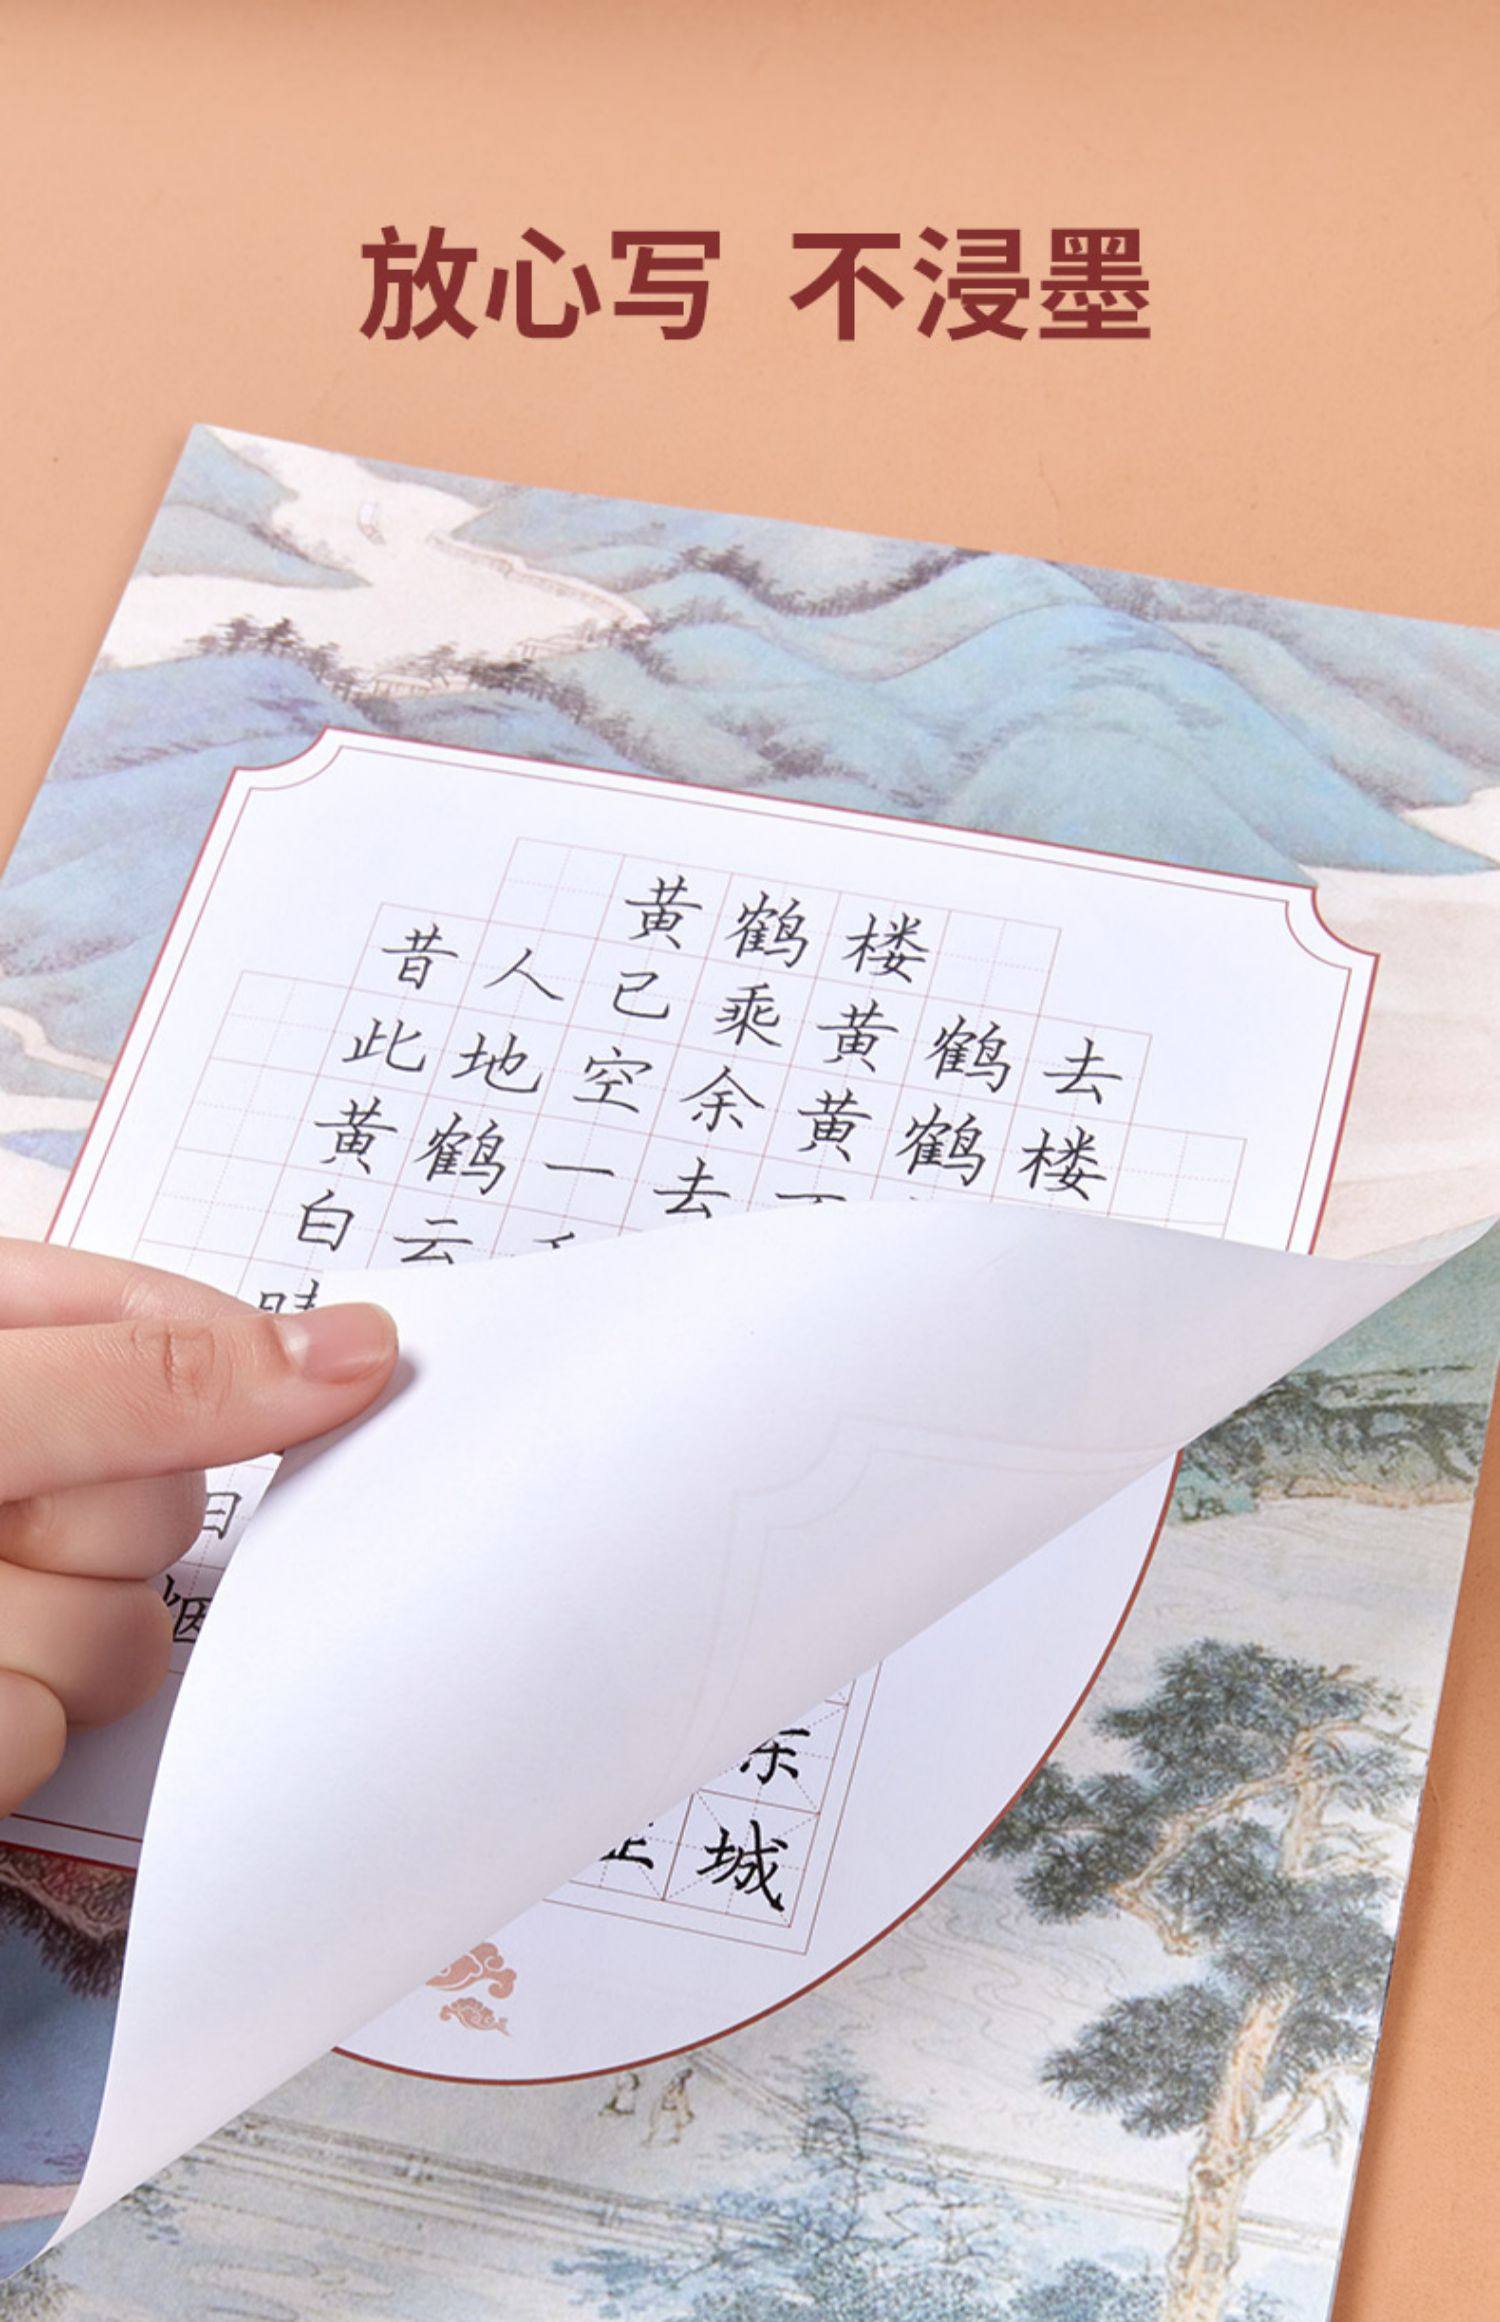 放心写 不浸墨
黄鹤楼
昔人已乘黄鹤去
此地空余黄鹤楼
黄鹤一去
白云
日
烟
城